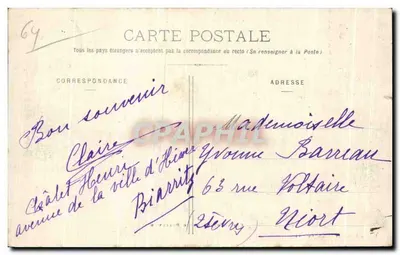 64
CARTE POSTALE
Tous les pays étrangers n'acceptent pas la correspondance au recto (Se renseigner à la Poste)
CORRESPONDANCE
ADRESSE
Bon souvenir
Claire
Châlet Henri
avenue de la ville d'Hiver
Biarritz
Mademoiselle
Yvonne Barreau
63 rue Voltaire
Niort
(2 Sèvres)